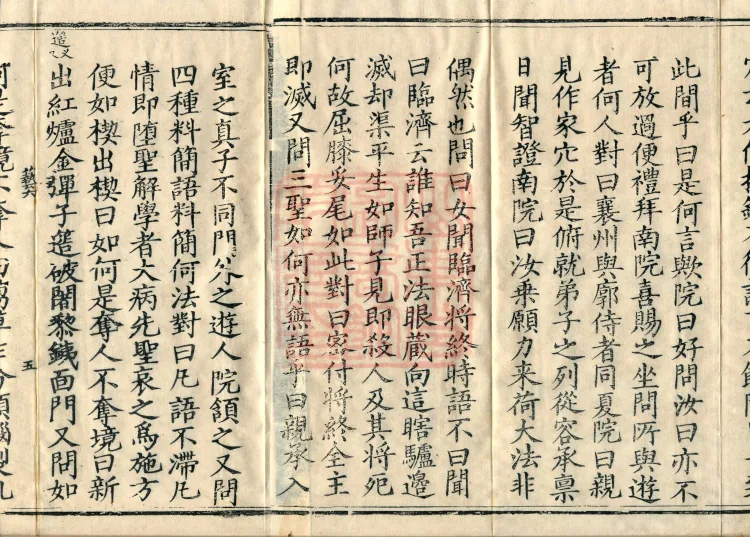 此間乎曰是何言歟院曰好問汝曰亦不
可放過便禮拜南院喜賜之坐問所與遊
者何人對曰襄州與廓侍者同夏院曰親
見作家穴於是俯就弟子之列從容承稟
日聞智證南院曰汝乗願力来荷大法非
偶然也問曰女聞臨濟將終時語不曰聞
曰臨濟云誰知吾正法眼藏向這瞎驢邉
滅却渠平生如師子見即殺人及其將死
何故屈膝妥尾如此對曰宻付將終全主
即滅又問三聖如何亦無語乎曰親承入
室之真子不同門外之遊人院頷之又問
四種料簡語料簡何法對曰凡語不滯凡
情即墮聖解學者大病先聖哀之為施方
便如楔出楔曰如何是奪人不奪境曰新
出紅爐金彈子簉破闍黎鐵面門又問如
藝六
五